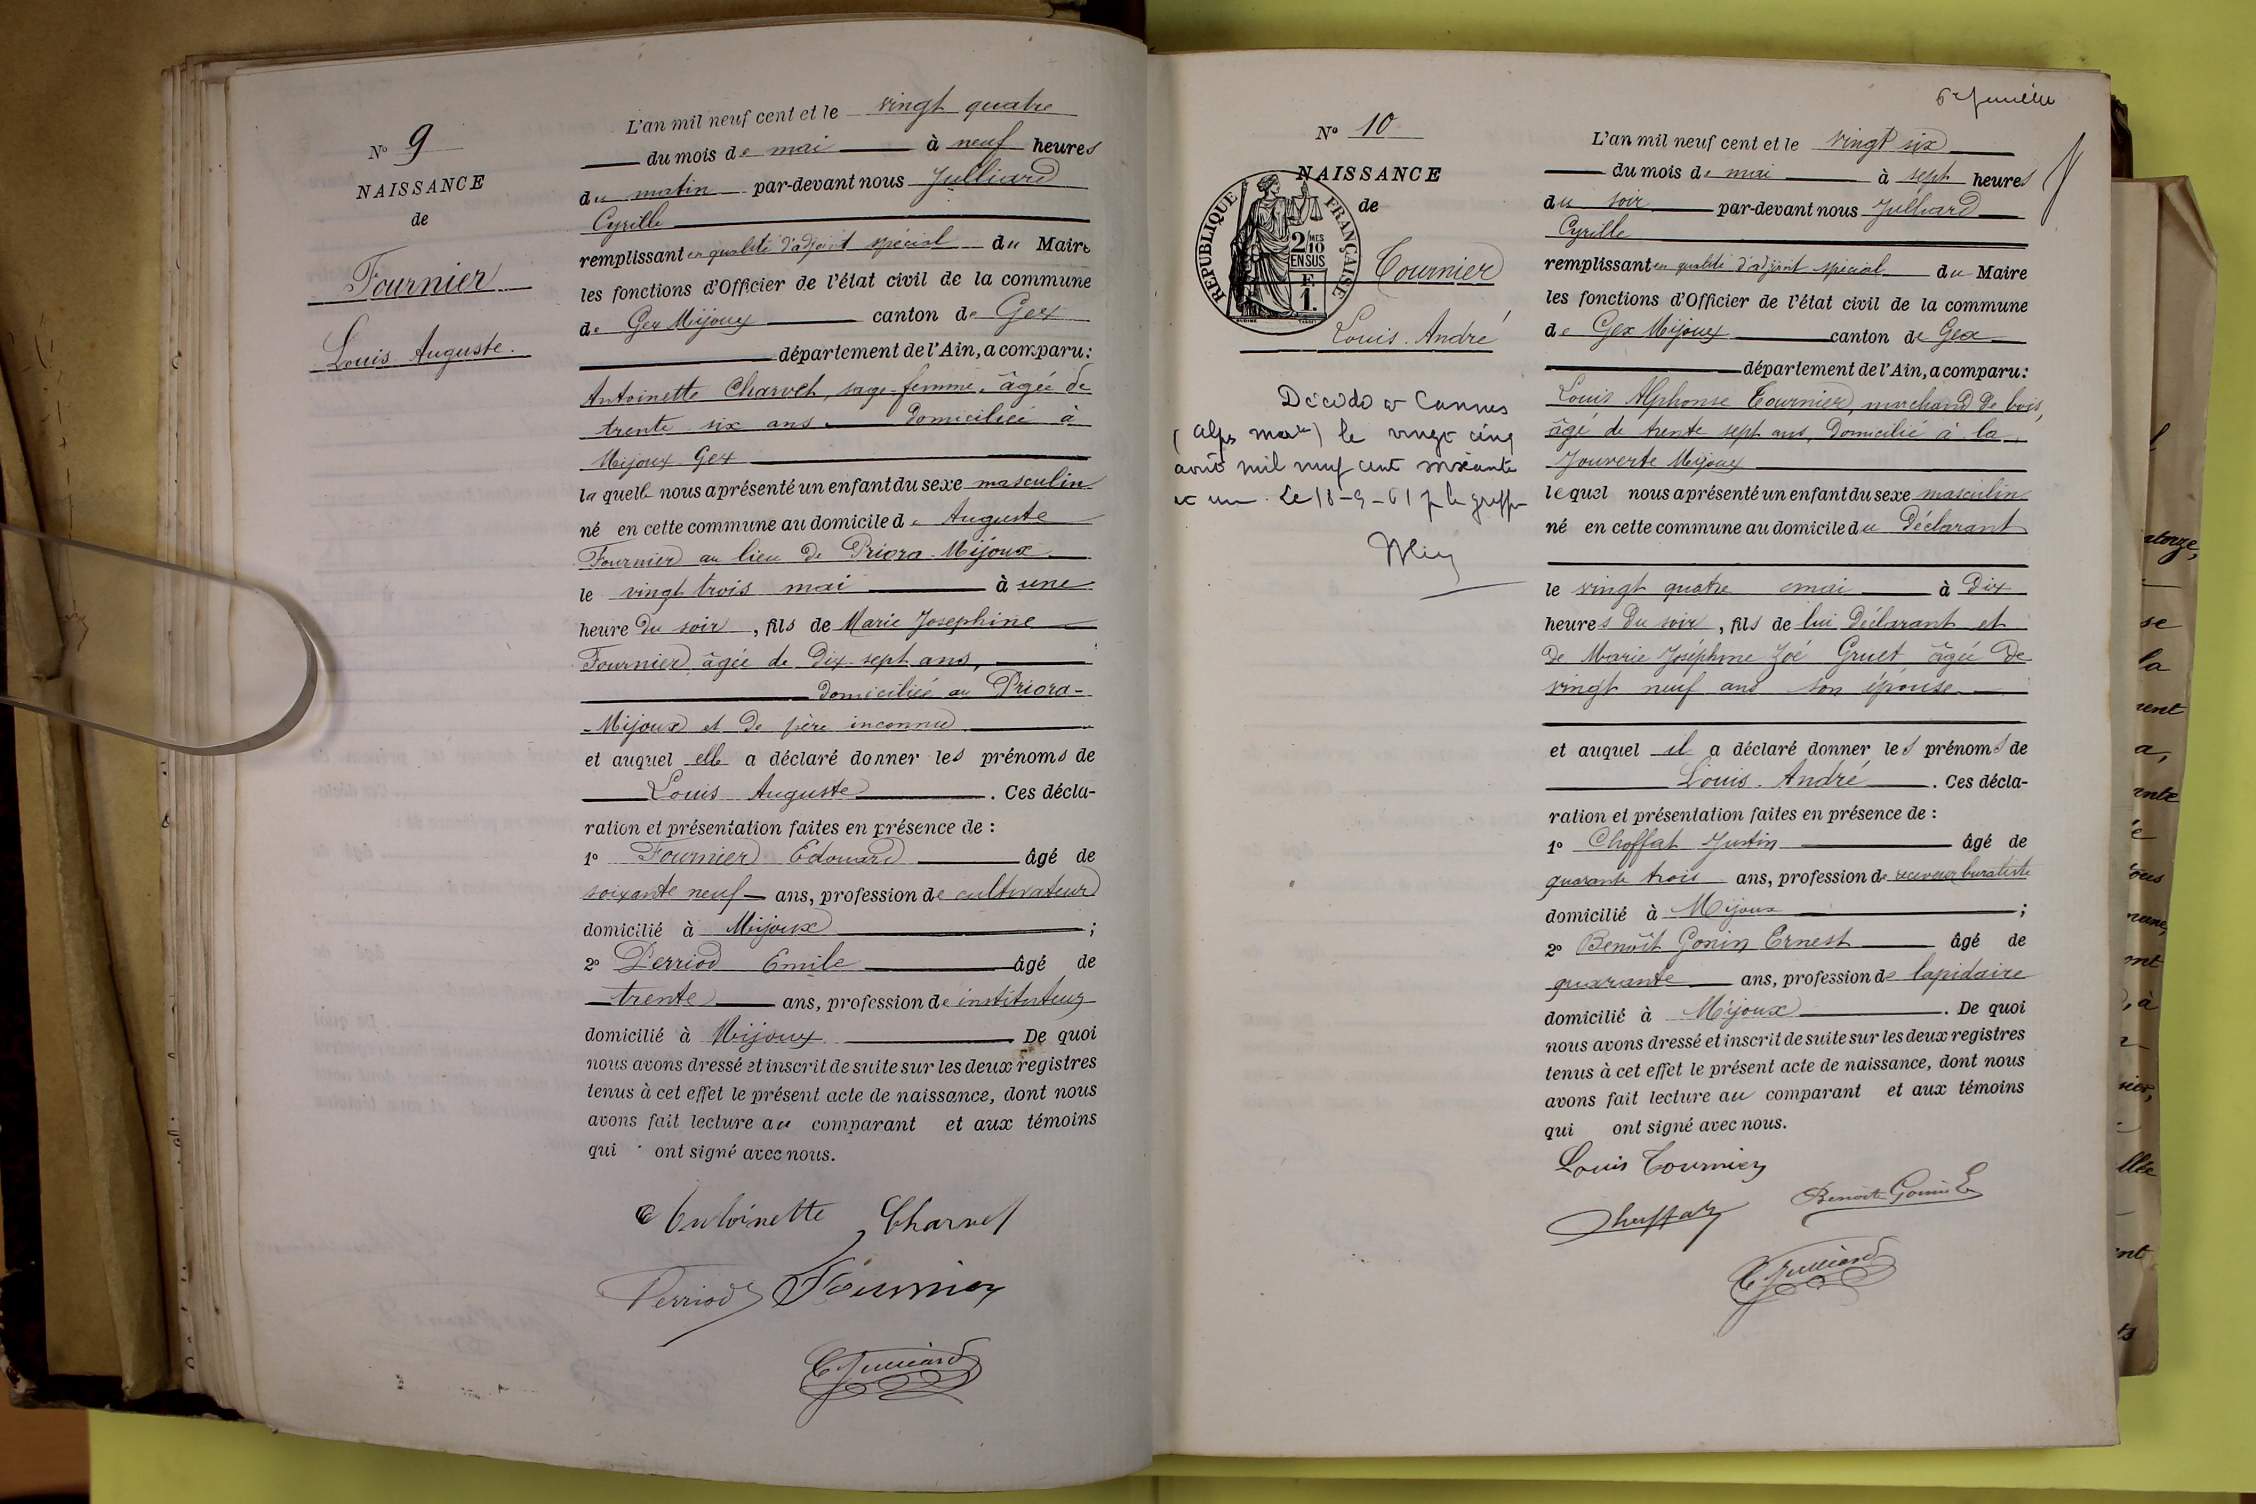 N° 9
NAISSANCE
de
Fournier
Louis Auguste.
L'an mil neuf cent et le vingt quatre
du mois de mai à neuf heures
du matin par-devant nous Julliard
Cyrille
remplissant en qualité d'adjoint spécial du Maire
les fonctions d'Officier de l'état civil de la commune
de Gex Mijoux canton de Gex
département de l'Ain, a comparu:
Antoinette Charvet, sage-femme, âgée de
trente six ans domiciliée à
Mijoux Gex
laquelle nous a présenté un enfant du sexe masculin
né en cette commune au domicile de Auguste
Fournier au lieu de Priora Mijoux
le vingt trois mai à une
heure du soir, fils de Marie Josephine
Fournier âgée de dix-sept ans,
domiciliée au Priora-
-Mijoux et de père inconnu
et auquel elle a déclaré donner les prénoms de
Louis Auguste. Ces décla-
ration et présentation faites en présence de :
1° Fournier Edouard âgé de
soixante neuf ans, profession de cultivateur
domicilié à Mijoux ;
2° Perriod Emile âgé de
trente ans, profession de instituteur
domicilié à Mijoux. De quoi
nous avons dressé et inscrit de suite sur les deux registres
tenus à cet effet le présent acte de naissance, dont nous
avons fait lecture au comparant et aux témoins
qui ont signé avec nous.
Antoinette Charvet
Perriod Fournier
C Julliard
6e feuille
N° 10
NAISSANCE
de
RÉPUBLIQUE FRANÇAISE
2/10 MES
EN SUS
F
1.
Tournier
Louis. André
Décédé à Cannes
(Alpes Mmes) le vingt cinq
août mil neuf cent soixante
et un. Le 18-9-61 p le greff
L'an mil neuf cent et le vingt six
du mois de mai à sept heures
du soir par-devant nous Julliard
Cyrille
remplissant en qualité d'adjoint spécial du Maire
les fonctions d'Officier de l'état civil de la commune
de Gex Mijoux canton de Gex
département de l'Ain, a comparu:
Louis Alphonse Tournier, marchand de bois,
âgé de trente sept ans, domicilié à la
Jouverte Mijoux
lequel nous a présenté un enfant du sexe masculin
né en cette commune au domicile du déclarant
le vingt quatre mai à dix
heures du soir, fils de lui déclarant et
de Marie Joséphine Zoé Gruet âgée de
vingt neuf ans son épouse
et auquel il a déclaré donner les prénoms de
Louis. André. Ces décla-
ration et présentation faites en présence de :
1° Choffat Justin âgé de
quarante trois ans, profession de receveur buraliste
domicilié à Mijoux ;
2° Benoît Gonin Ernest âgé de
quarante ans, profession de lapidaire
domicilié à Mijoux. De quoi
nous avons dressé et inscrit de suite sur les deux registres
tenus à cet effet le présent acte de naissance, dont nous
avons fait lecture au comparant et aux témoins
qui ont signé avec nous.
Louis Tournier
Choffat Benoit Gonin E
C Julliard